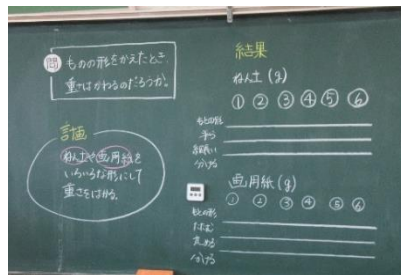 問 ものの形をかえたとき、
重さはかわるのだろうか。
計画
ねん土や画用紙を
いろいろな形にして
重さをはかる。
結果
ねん土(g)
① ② ③ ④ ⑤ ⑥
もとの形
平ら
細長い
分ける
画用紙(g)
① ② ③ ④ ⑤ ⑥
もとの形
丸める
分ける